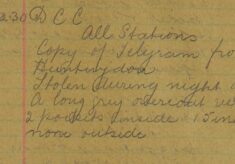 2.30 D C C
All Stations
Copy of Telegram fro
Huntingdon
Stolen during night
A long grey overcoat
2 pockets inside 15 in
none outside